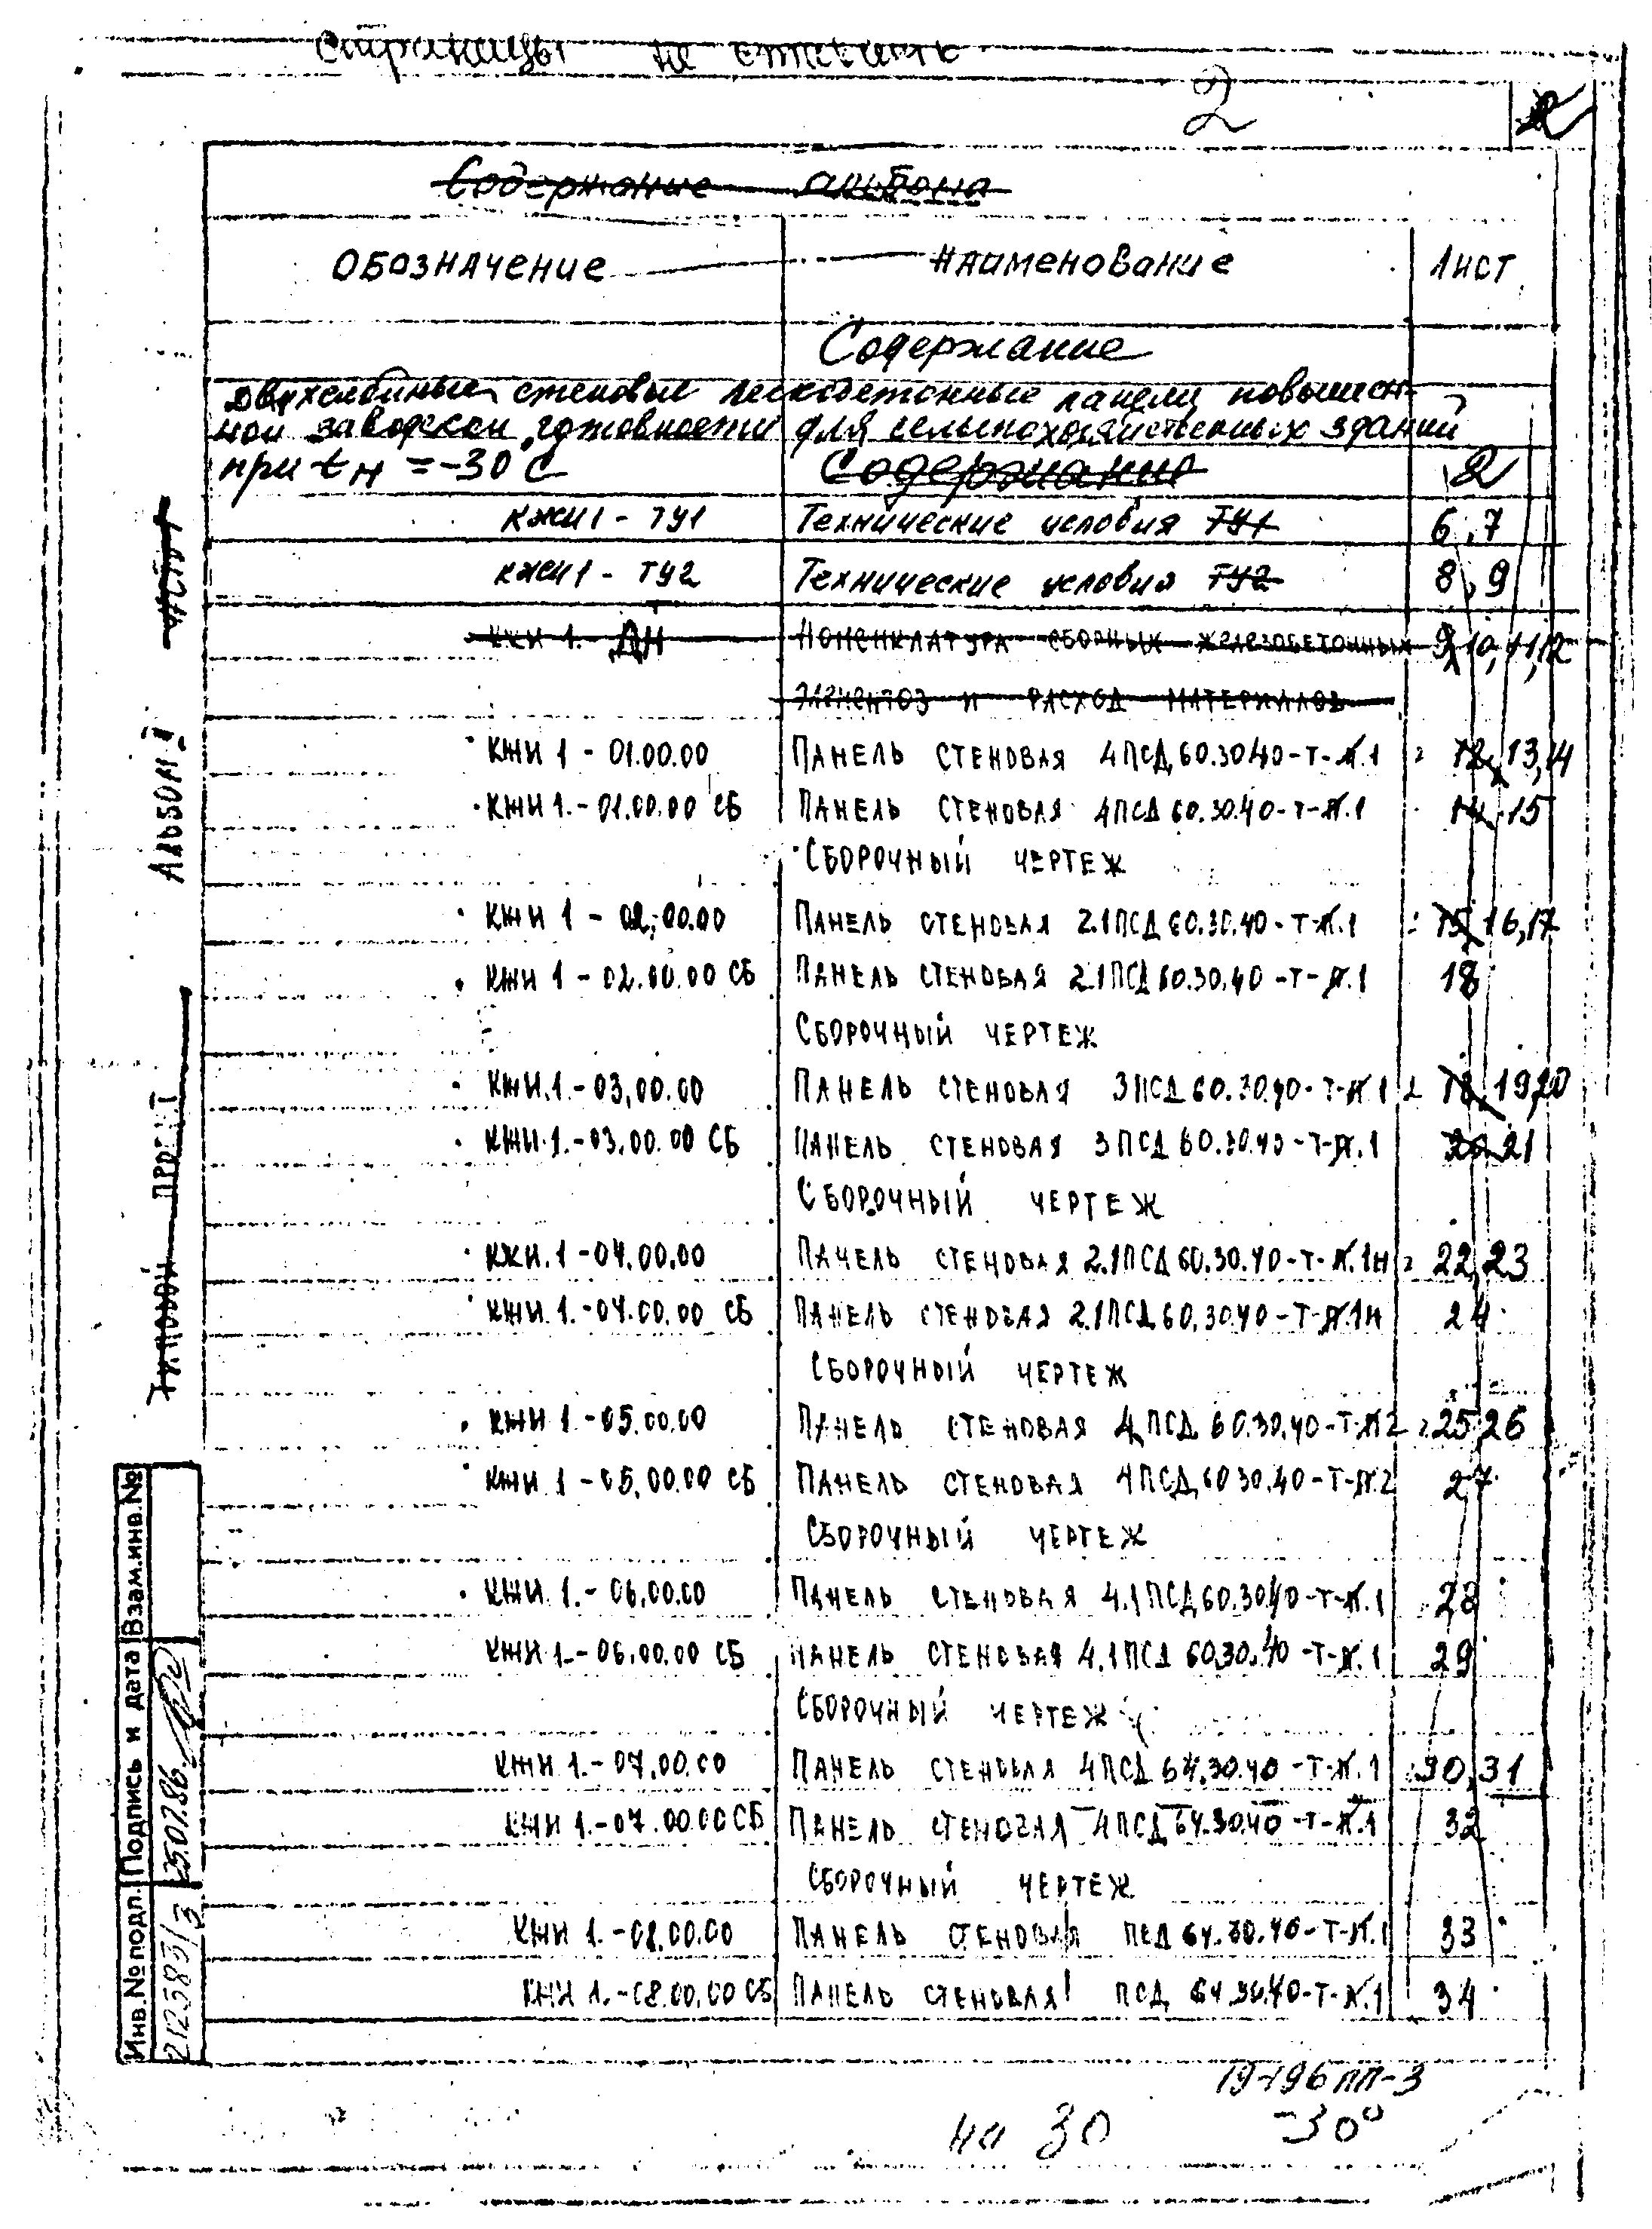 Страницы не
2
Содержание альбома
Обозначение Наименование Лист
Содержание
Двухслойные стеновые легкобетонные панели повышен-
ной заводской готовности для сельскохозяйственных зданий
при tн = -30°С Содержание 2
КЖИ1 - ТУ1 Технические условия ТУ1 6,7
КЖИ1 - ТУ2 Технические условия ТУ2 8,9
КЖИ 1. - ДН Номенклатура сборных железобетонных 9,10,11,12
элементов и расход материалов
КЖИ 1 - 01.00.00 Панель стеновая 4ПСД 60.30.40-Т-Л.1 12, 13,14
КЖИ 1. - 01.00.00 СБ Панель стеновая 4ПСД 60.30.40-Т-Л.1 14, 15
Сборочный чертеж
КЖИ 1 - 02.00.00 Панель стеновая 2.1ПСД 60.30.40-Т-Л.1 15, 16,17
КЖИ 1 - 02.00.00 СБ Панель стеновая 2.1ПСД 60.30.40-Т-Л.1 18
Сборочный чертеж
КЖИ.1.-03.00.00 Панель стеновая 3ПСД 60.30.40-Т-Л.1 18, 19,20
КЖИ.1.-03.00.00 СБ Панель стеновая 3ПСД 60.30.40-Т-Л.1 20, 21
Сборочный чертеж
КЖИ.1-04.00.00 Панель стеновая 2.1ПСД 60.30.40-Т-Л.1н 22,23
КЖИ 1.-04.00.00 СБ Панель стеновая 2.1ПСД 60.30.40-Т-Л.1н 24
Сборочный чертеж
КЖИ 1.-05.00.00 Панель стеновая 4ПСД 60.30.40-Т-Л2 25,26
КЖИ 1 - 05.00.00 СБ Панель стеновая 4ПСД 60.30.40-Т-Л.2 27
Сборочный чертеж
КЖИ 1.-06.00.00 Панель стеновая 4.1ПСД 60.30.40-Т-Л.1 28
КЖИ 1.-06.00.00 СБ Панель стеновая 4.1ПСД 60.30.40-Т-Л.1 29
Сборочный чертеж
КЖИ 1.-07.00.00 Панель стеновая 4ПСД 64.30.40-Т-Л.1 30,31
КЖИ 1.-07.00.00 СБ Панель стеновая 4ПСД 64.30.40-Т-Л.1 32
Сборочный чертеж
КЖИ 1.-08.00.00 Панель стеновая ПСД 64.30.40-Т-Л.1 33
КЖИ 1.-08.00.00 СБ Панель стеновая ПСД 64.30.40-Т-Л.1 34
Типовой проект Альбом I
Инв.№ подл. Подпись и дата Взам.инв.№
212583/3 25.07.86
19496пп-3
на 30 -30°